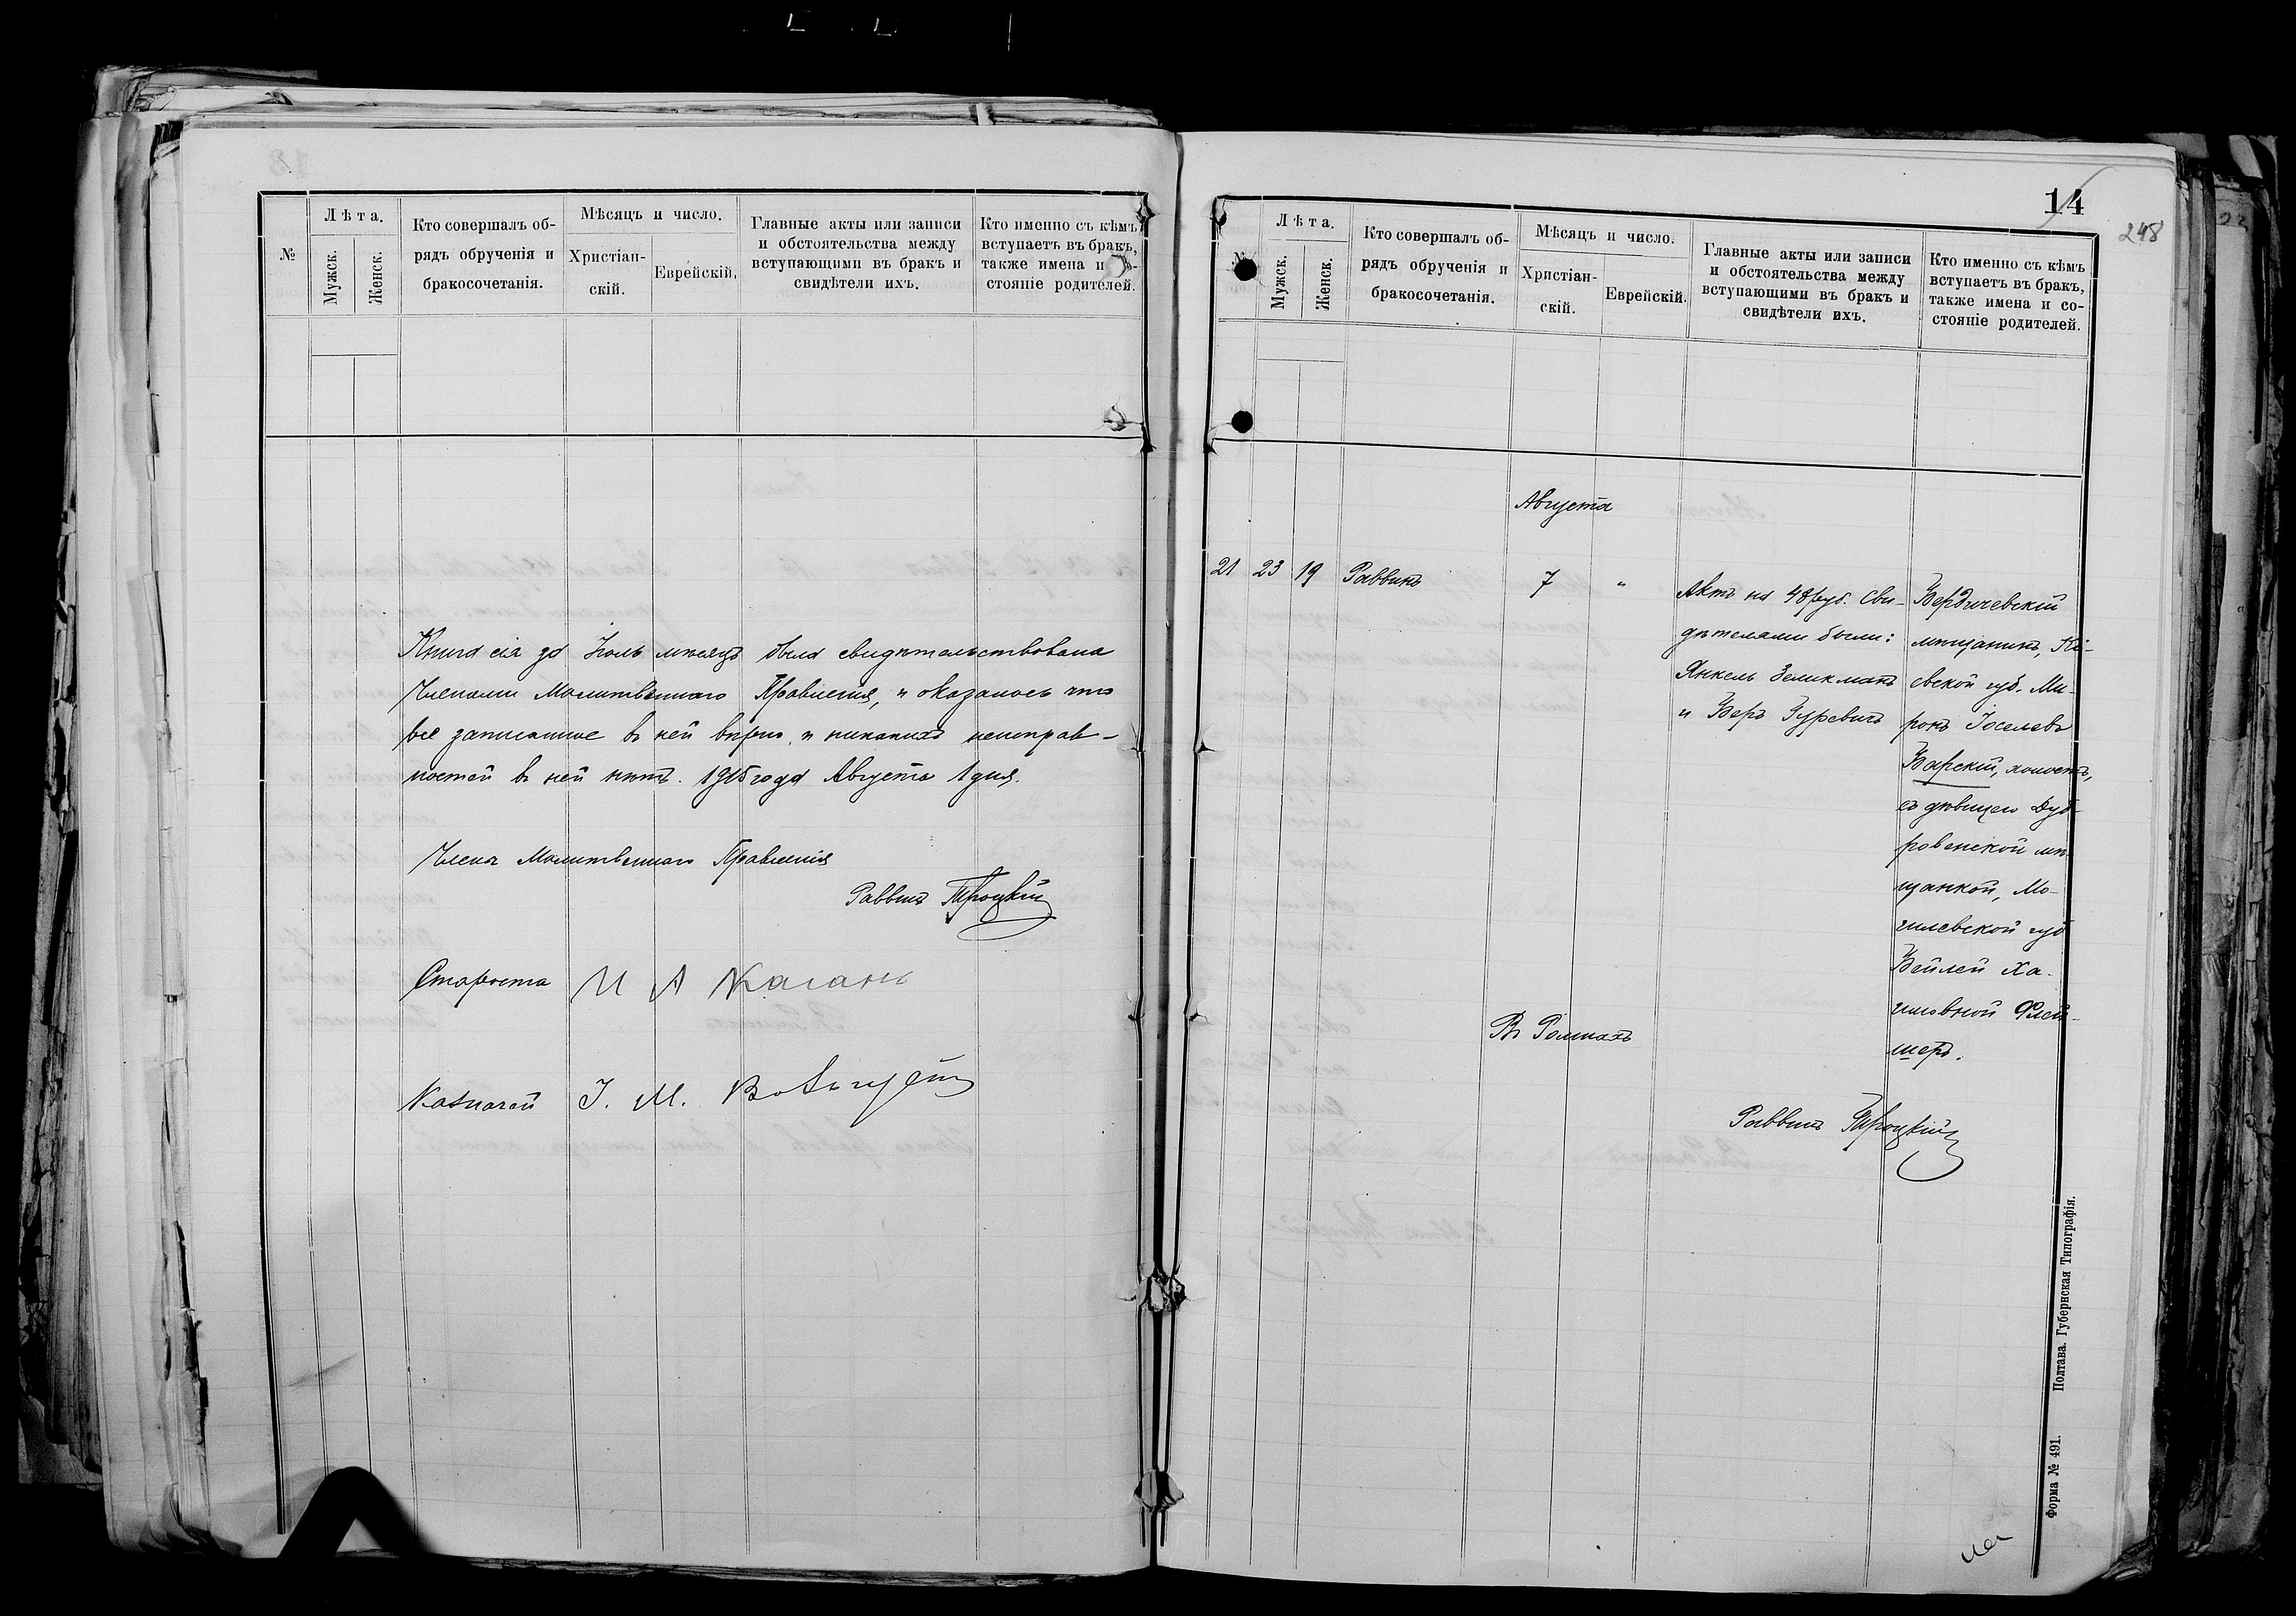 №
Лѣта.
Мужск.
Женск.
Кто совершалъ об-
рядъ обрученія и
бракосочетанія.
Мѣсяцъ и число.
Христіан-
скій.
Еврейскій.
Главные акты или записи
и обстоятельства между
вступающими въ бракъ и
свидѣтели ихъ.
Кто именно съ кѣмъ
вступаетъ въ бракъ,
также имена и
стояніе родителей.
Книга сія за Іюль мѣсяцъ была свидѣтельствована
Членами Молитвеннаго Правленія, и оказалось что
все записанное въ ней вѣрно, и никакихъ неисправ-
ностей въ ней нѣтъ. 1915 года Августа 1 дня.
Члены Молитвеннаго Правленія
Раввинъ Троцкій
Староста И А Каганъ
Казначей І. М.
14
248
№
Лѣта.
Мужск.
Женск.
Кто совершалъ об-
рядъ обрученія и
бракосочетанія.
Мѣсяцъ и число.
Христіан-
скій.
Еврейскій.
Главные акты или записи
и обстоятельства между
вступающими въ бракъ и
свидѣтели ихъ.
Кто именно съ кѣмъ
вступаетъ въ бракъ,
также имена и со-
стояніе родителей.
Августа
21 23 19 Раввинъ 7 "
Актъ на 48 руб. Сви-
дѣтелями были:
Янкель Зеликманъ
и Беръ Гуревичъ
Бердичевскій
мѣщанинъ, Кі-
евской губ. Ми-
ронъ Іоселевъ
Барскій, холостъ,
съ дѣвицею Дуб-
ровенской мѣ-
щанкой, Мо-
гилевской губ
Бейлей Ха-
имовной Флей-
шеръ.
Въ Ромнахъ
Раввинъ Троцкій
Форма № 491. Полтава. Губернская Типографія.